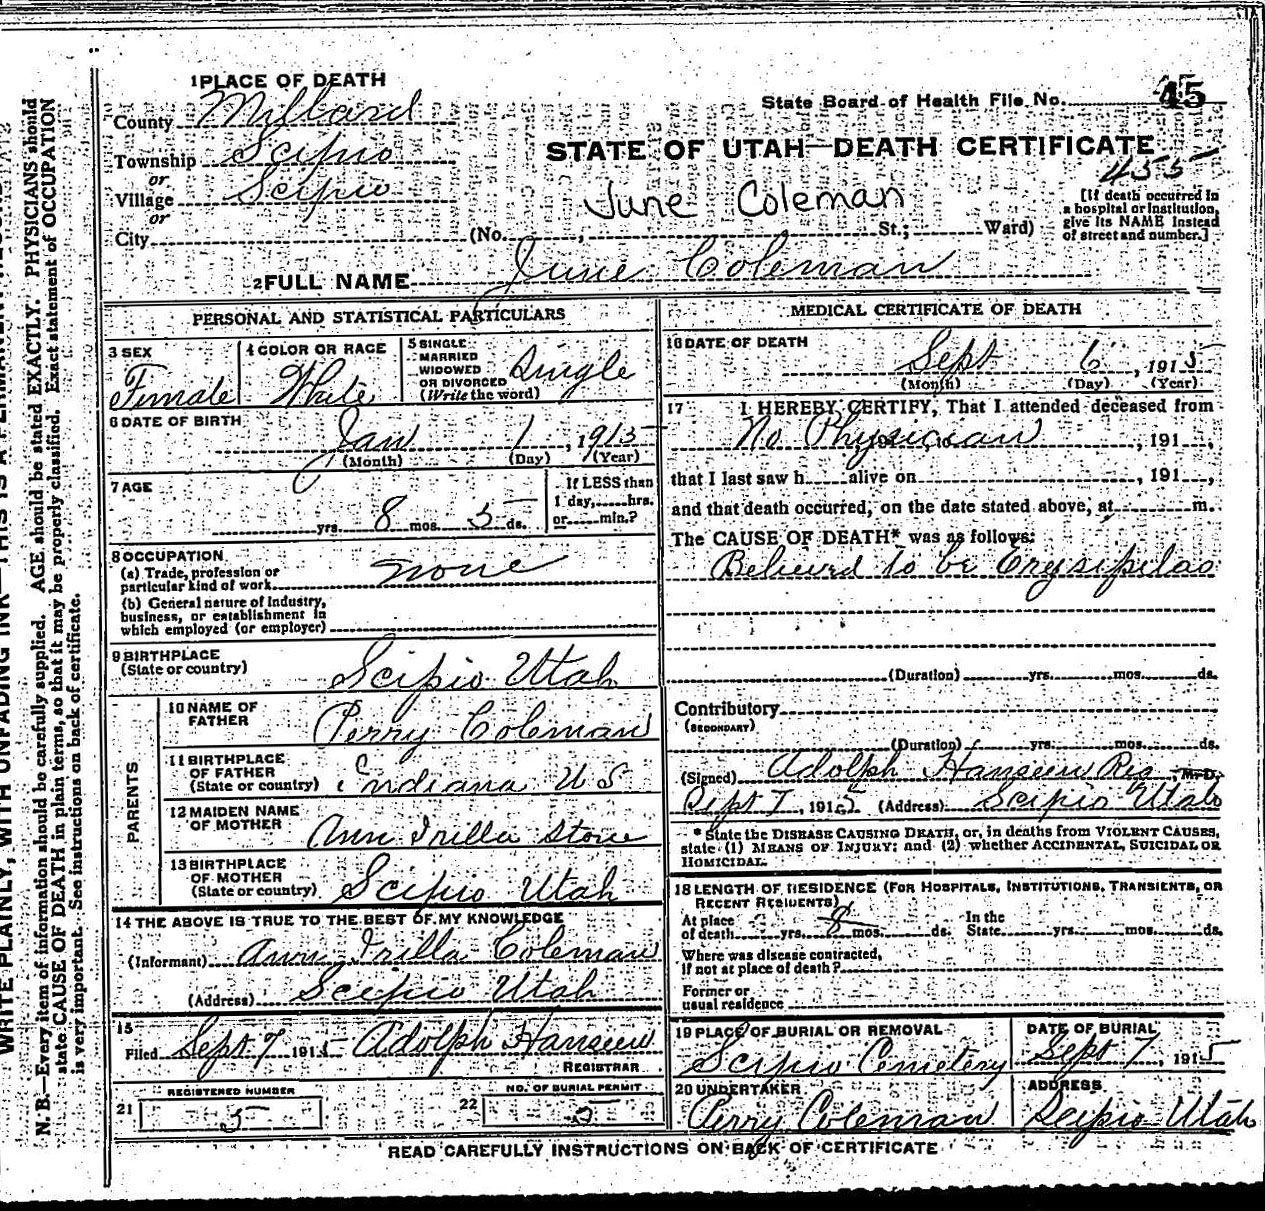 1 PLACE OF DEATH
County Millard
State Board of Health File No. 45
Township Scipio
or
STATE OF UTAH—DEATH CERTIFICATE
455
Village Scipio
or
June Coleman
City (No. , St.; Ward)
[If death occurred in
a hospital or institution,
give its NAME instead
of street and number.]
2 FULL NAME June Coleman
PERSONAL AND STATISTICAL PARTICULARS
3 SEX
Female
4 COLOR OR RACE
White
5 SINGLE
MARRIED
WIDOWED
OR DIVORCED
(Write the word)
Single
6 DATE OF BIRTH
Jan 1, 1915
(Month) (Day) (Year)
7 AGE
yrs. 8 mos. 5 ds.
If LESS than
1 day, hrs.
or min.?
8 OCCUPATION
(a) Trade, profession or
particular kind of work none
(b) General nature of industry,
business, or establishment in
which employed (or employer)
9 BIRTHPLACE
(State or country) Scipio Utah
PARENTS
10 NAME OF
FATHER Perry Coleman
11 BIRTHPLACE
OF FATHER
(State or country) Indiana U S
12 MAIDEN NAME
OF MOTHER Ann Trilla Stone
13 BIRTHPLACE
OF MOTHER
(State or country) Scipio Utah
14 THE ABOVE IS TRUE TO THE BEST OF MY KNOWLEDGE
(Informant) Ann Trilla Coleman
(Address) Scipio Utah
15
Filed Sept 7 1915 Adolph Hansen
REGISTRAR
REGISTERED NUMBER
21 5
NO. OF BURIAL PERMIT
22 5
MEDICAL CERTIFICATE OF DEATH
16 DATE OF DEATH
Sept 6, 1915
(Month) (Day) (Year)
17 I HEREBY CERTIFY, That I attended deceased from
No Physician, 191 ,
that I last saw h alive on , 191 ,
and that death occurred, on the date stated above, at m.
The CAUSE OF DEATH* was as follows:
Believed to be Erysipilas
(Duration) yrs. mos. ds.
Contributory
(SECONDARY)
(Duration) yrs. mos. ds.
(Signed) Adolph Hansen Reg, M.D.
Sept 7, 1915 (Address) Scipio Utah
* State the DISEASE CAUSING DEATH, or, in deaths from VIOLENT CAUSES,
state (1) MEANS OF INJURY; and (2) whether ACCIDENTAL, SUICIDAL OR
HOMICIDAL.
18 LENGTH OF RESIDENCE (FOR HOSPITALS, INSTITUTIONS, TRANSIENTS, OR
RECENT RESIDENTS)
At place
of death yrs. 8 mos. ds.
In the
State yrs. mos. ds.
Where was disease contracted,
if not at place of death?
Former or
usual residence
19 PLACE OF BURIAL OR REMOVAL
Scipio Cemetery
DATE OF BURIAL
Sept 7, 1915
20 UNDERTAKER
Perry Coleman
ADDRESS
Scipio Utah
READ CAREFULLY INSTRUCTIONS ON BACK OF CERTIFICATE
WRITE PLAINLY, WITH UNFADING INK—THIS IS A PERMANENT
N. B.—Every item of information should be carefully supplied. AGE should be stated EXACTLY. PHYSICIANS should
state CAUSE OF DEATH in plain terms, so that it may be properly classified. Exact statement of OCCUPATION
is very important. See instructions on back of certificate.